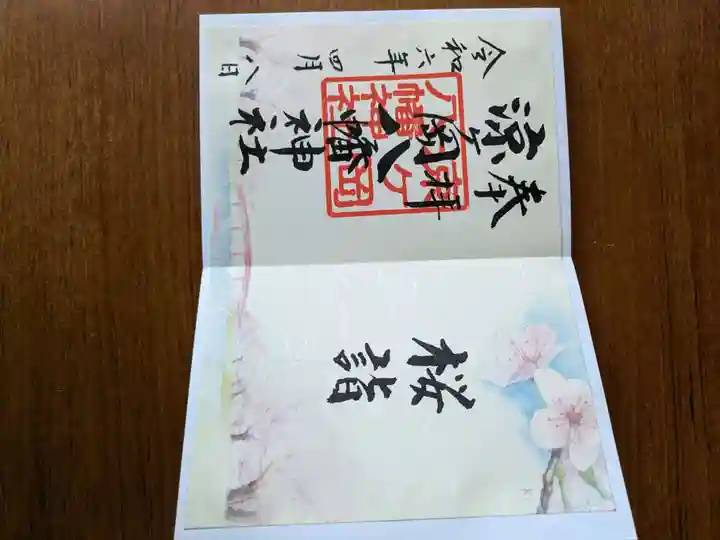 桜詣
奉拝
涼ヶ岡八幡神社
令和六年四月八日
涼ヶ岡
八幡神社